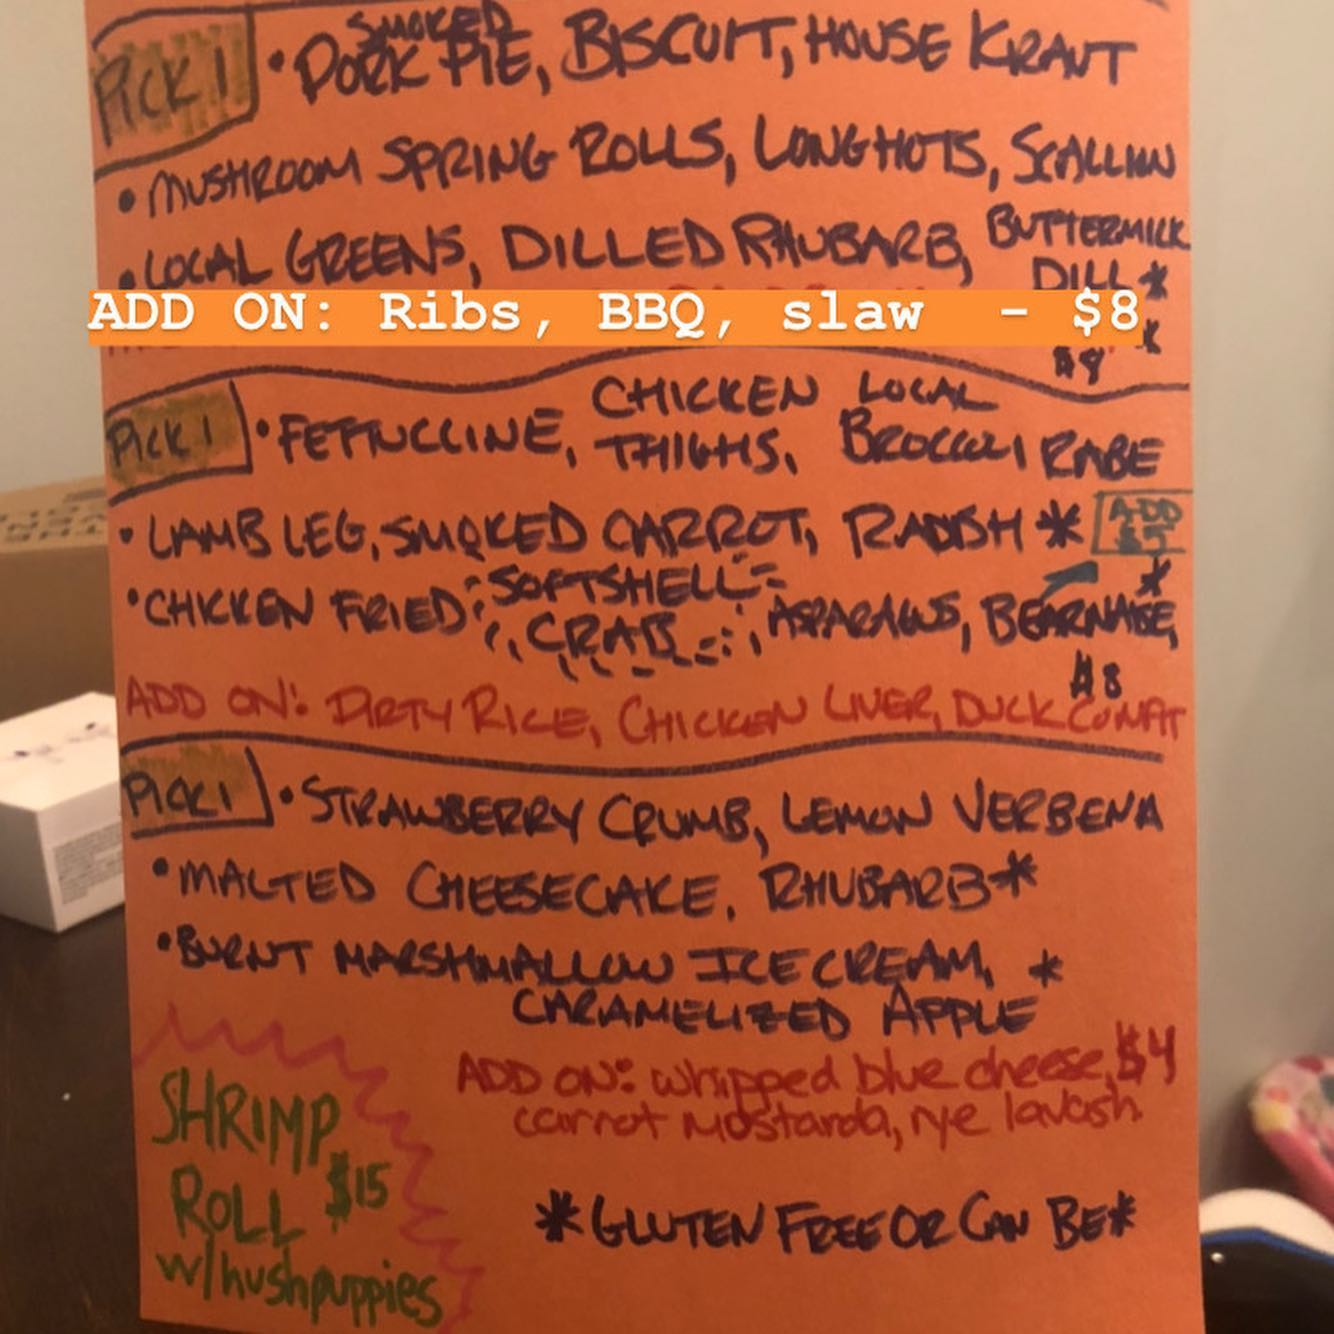 PICK 1 • SMOKED PORK PIE, BISCUIT, HOUSE KRAUT
• MUSHROOM SPRING ROLLS, LONGHOTS, SCALLION
• LOCAL GREENS, DILLED RHUBARB, BUTTERMILK
DILL *
ADD ON: Ribs, BBQ, slaw - $8
$8 *
PICK 1 • FETTUCCINE, CHICKEN THIGHS, LOCAL BROCCOLI RABE
• LAMB LEG, SMOKED CARROT, RADISH * ADD $5
• CHICKEN FRIED SOFTSHELL CRAB, ASPARAGUS, BEARNAISE, *
$8
ADD ON: DIRTY RICE, CHICKEN LIVER, DUCK CONFIT
PICK 1 • STRAWBERRY CRUMB, LEMON VERBENA
• MALTED CHEESECAKE, RHUBARB *
• BURNT MARSHMALLOW ICE CREAM, *
CARAMELIZED APPLE
ADD ON: whipped blue cheese, $4
carrot mostarda, rye lavash
SHRIMP
ROLL $15
w/ hushpuppies
* GLUTEN FREE OR CAN BE *